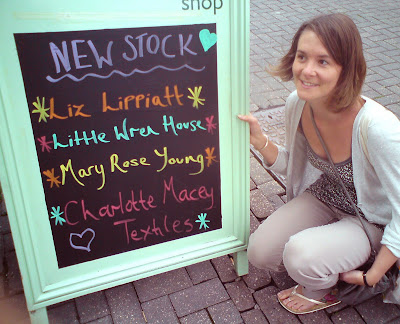 shop
NEW STOCK
Liz Lippiatt
Little Wren House
Mary Rose Young
Charlotte Macey
Textiles